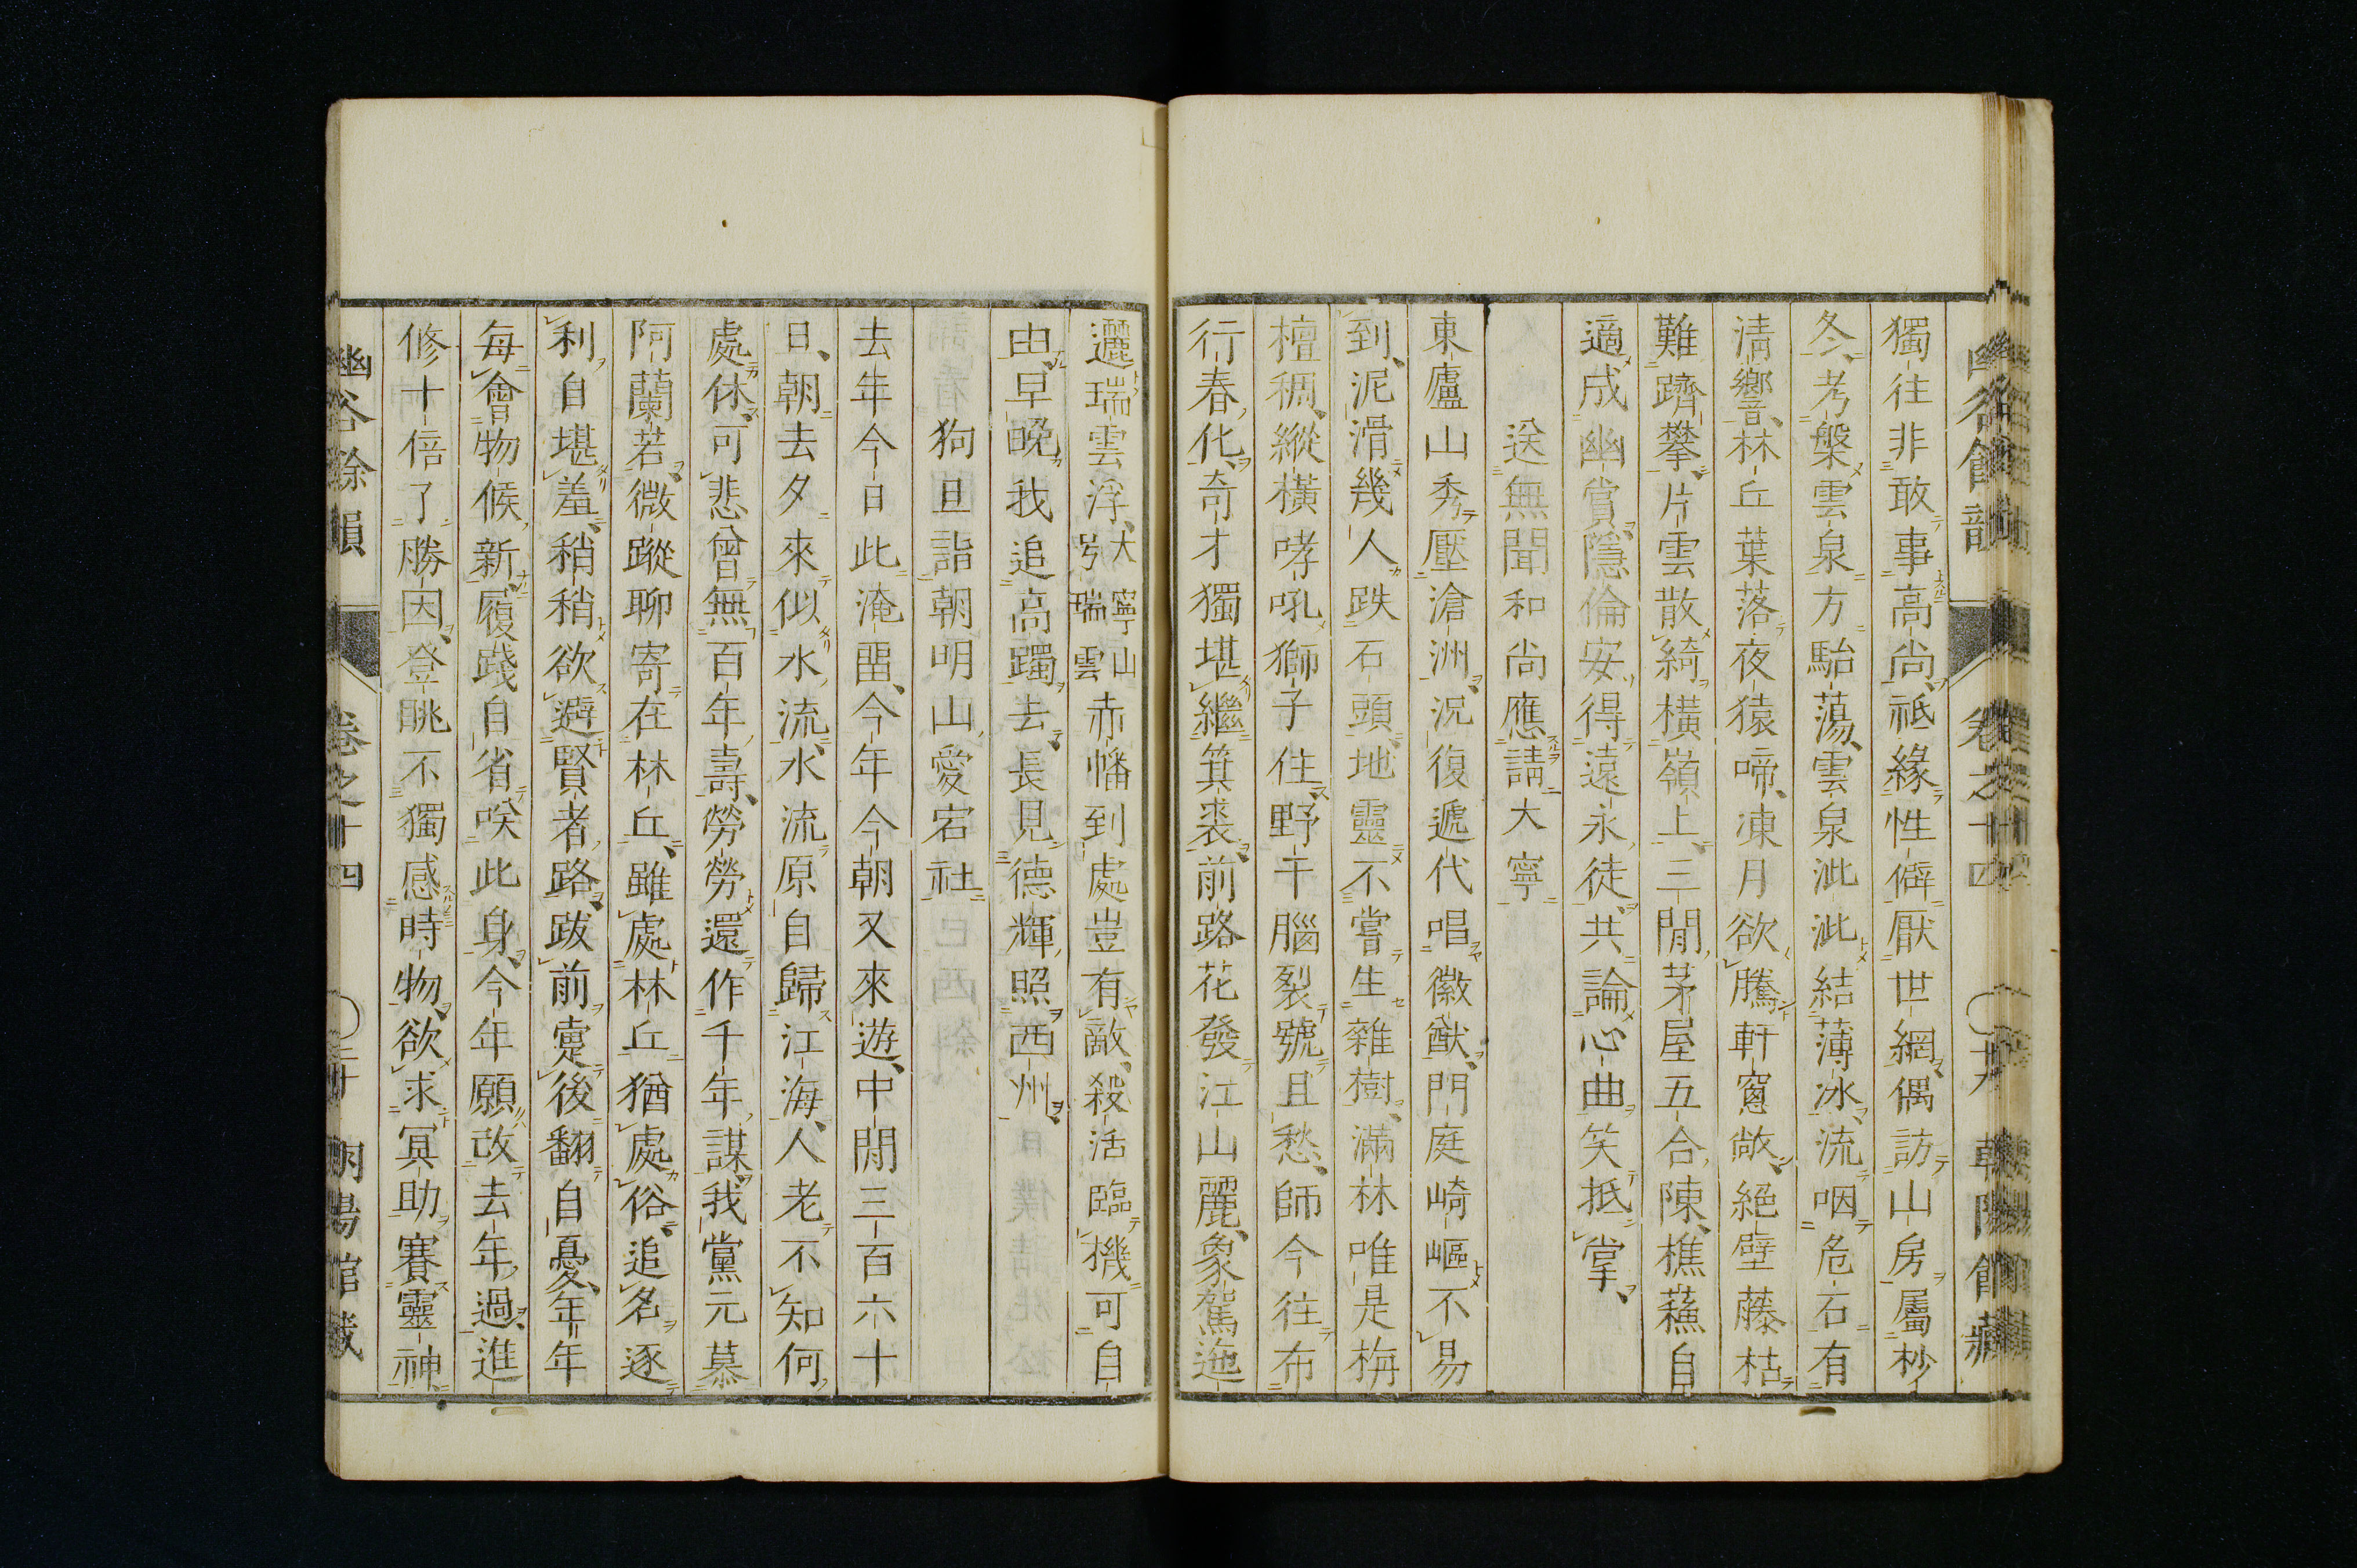 獨往非敢事高尚祗緣性僻厭世網偶訪山房屬杪
冬考槃雲泉方駘蕩雲泉泚泚結薄冰流咽危石有
淸響林丘葉落夜猿啼凍月欲騰軒窻敞絕壁藤枯
難躋攀片雲散綺橫嶺上三閒茅屋五合陳樵蘓自
適成幽賞隱倫安得遠永徒共論心曲笑抵掌
送無聞和尚應請大寧
東廬山秀壓滄洲況復遞代唱徽猷門庭崎嶇不易
到泥滑幾人跌石頭地靈不嘗生雜樹滿林唯是栴
檀稠縱橫哮吼獅子住野干腦裂號且愁師今往布
行春化奇才獨堪繼箕裘前路花發江山麗象駕迤
邐瑞雲浮大寧山号瑞雲赤幡到處豈有敵殺活臨機可自
由早晚我追高躅去長見德輝照西州
狗旦詣朝明山愛宕社
去年今日此淹畱今年今朝又來遊中閒三百六十
日朝去夕來似水流水流原自歸江海人老不知何
處休可悲曾無百年壽勞勞還作千年謀我黨元慕
阿蘭若微蹤聊寄在林丘雖處林丘猶處俗追名逐
利自堪羞稍稍欲避賢者路跋前疐後翻自憂年年
每會物候新履踐自省咲此身今年願改去年過進
修十倍了勝因登眺不獨感時物欲求冥助賽靈神
幽谷餘韻 卷之十四 〇二十 朝陽館藏